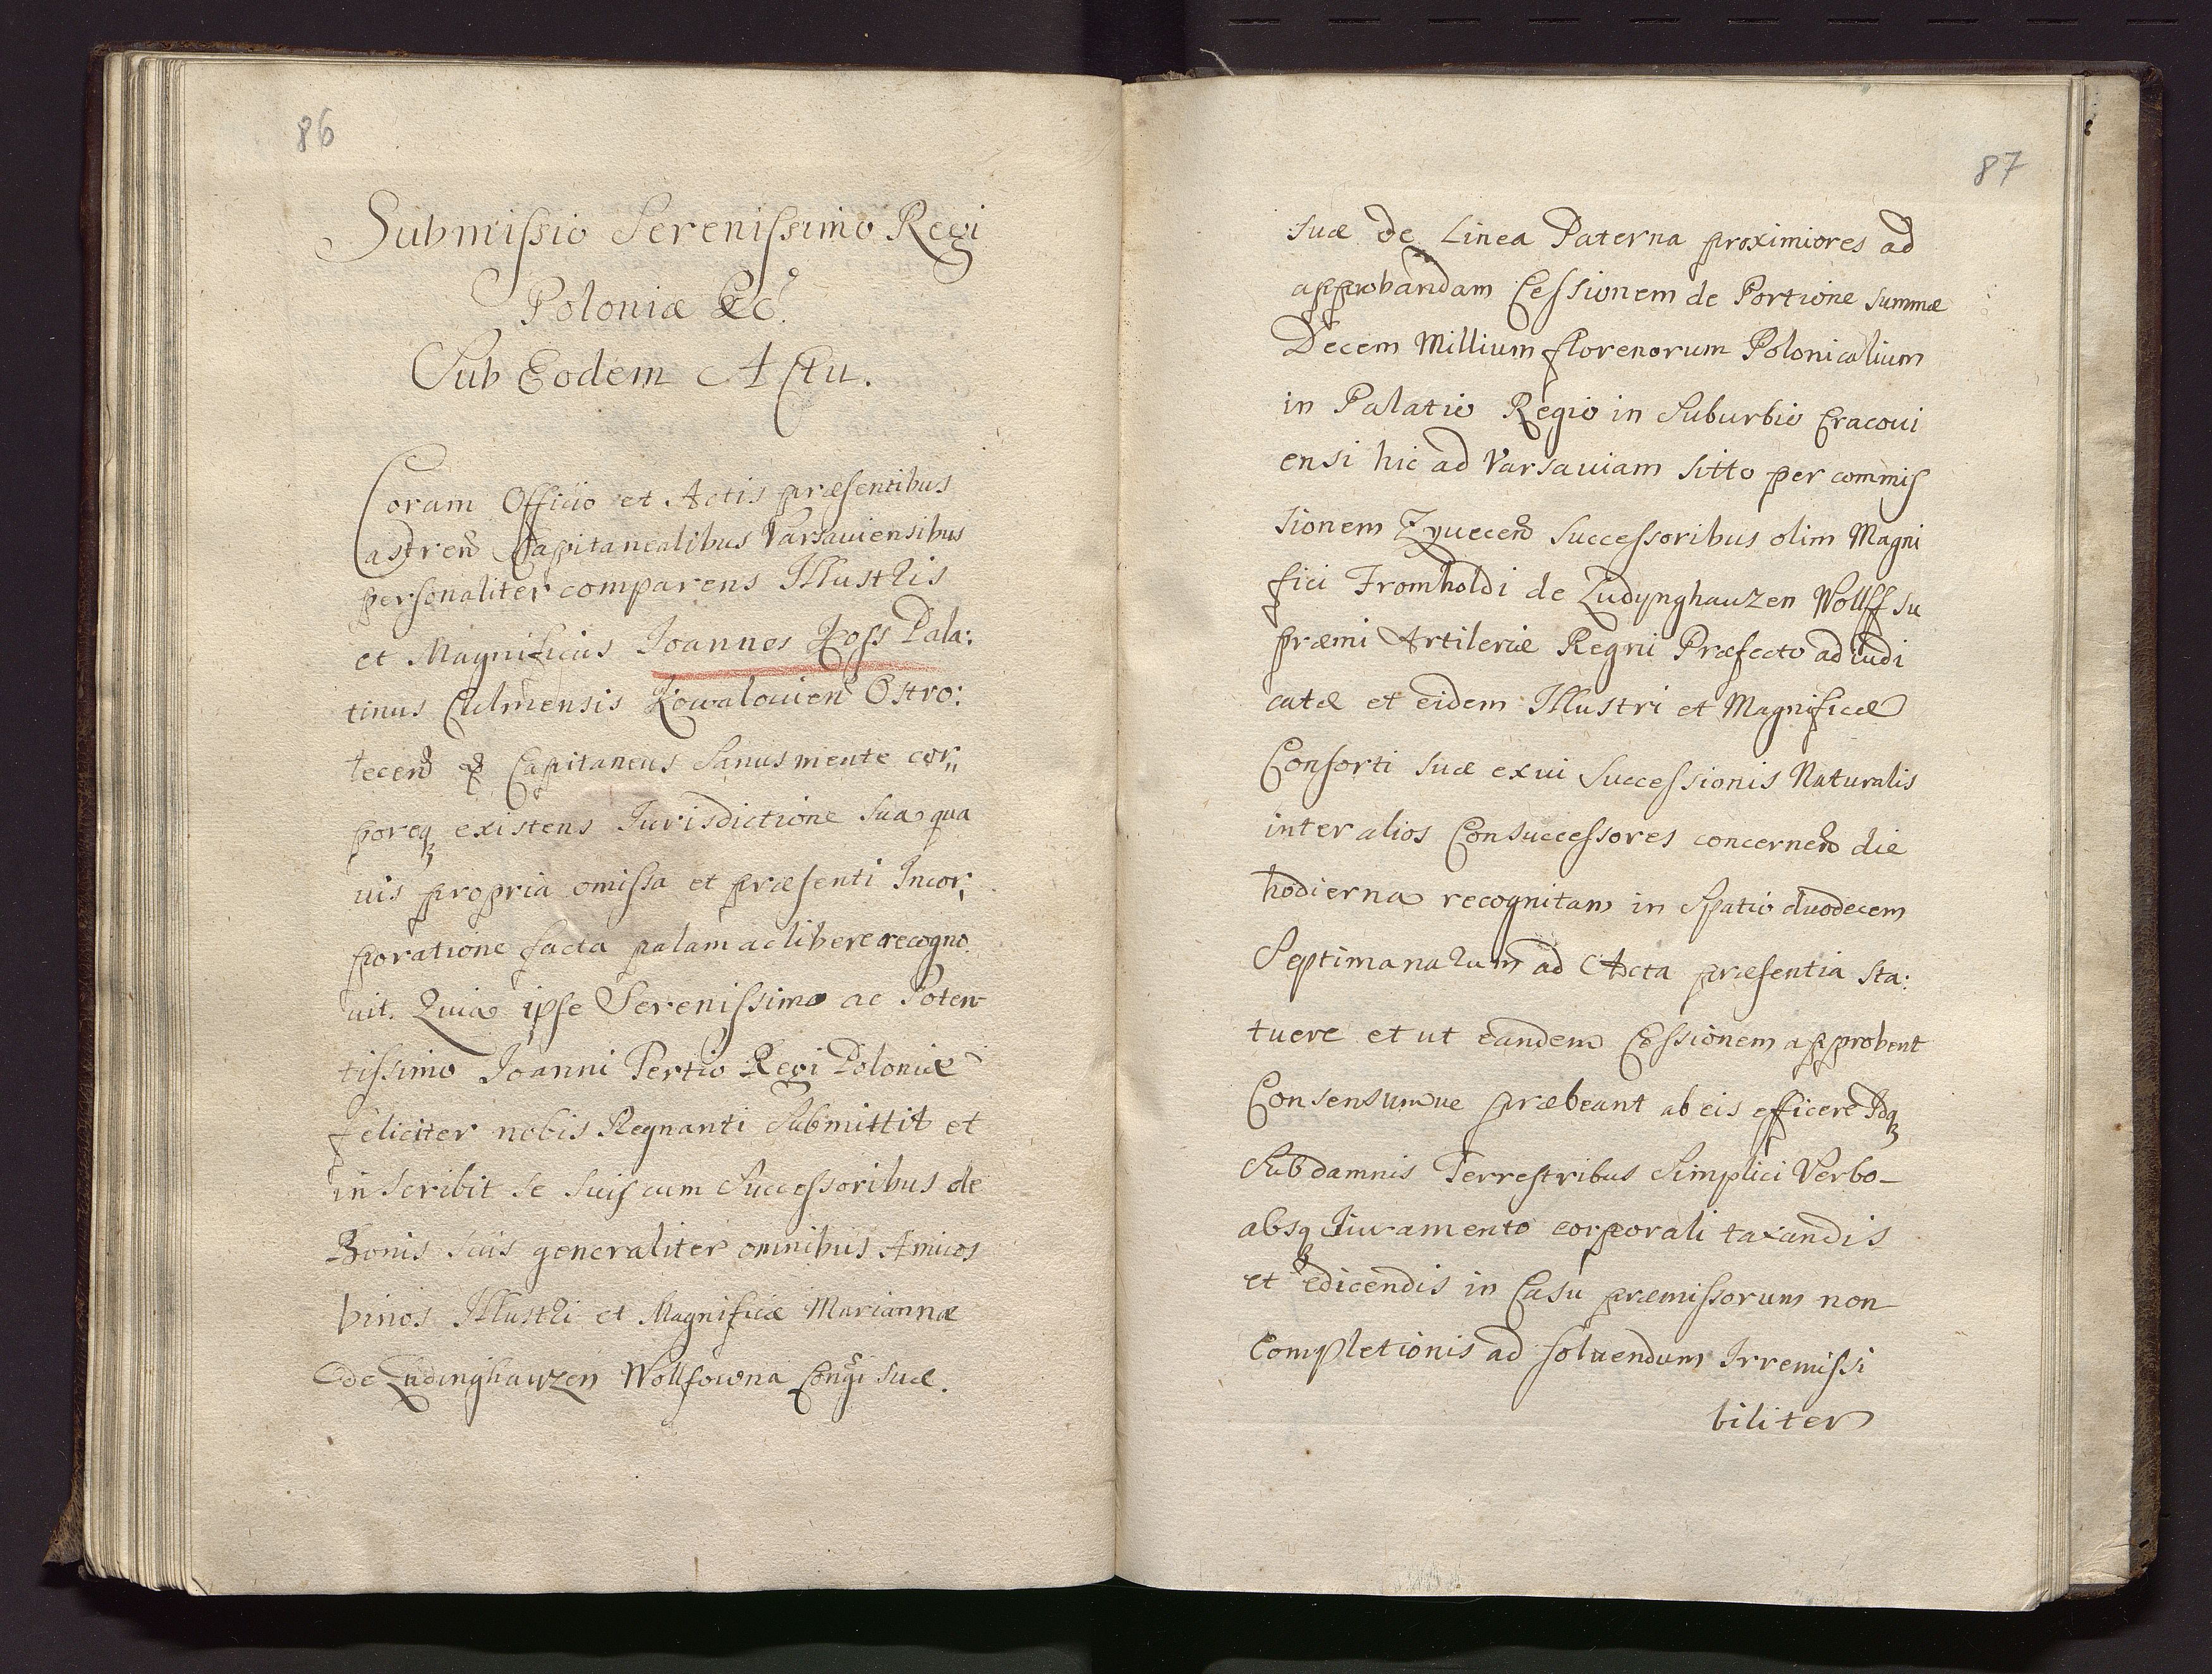 86
Submissio Serenissimo Regi
Poloniæ &c.
Sub Eodem Actu.
Coram Officio et Actis præsentibus
Castren Capitanealibus Varsauiensibus
personaliter comparens Illustris
et Magnificus Joannes Koss Pala:
tinus Culmensis Kowalouien Ostro:
tecen & Capitaneus Sanus mente cor,,
poreq existens Jurisdictione sua qua
uis propria omissa et præsenti Incor,,
poratione facta palam ac libere recogno
uit. Quia ipse Serenissimo ac Poten
tissimo Joanni Tertio Regi Poloniæ
feliciter nobis Regnanti Submittit et
inscribit se suis cum Successoribus de
Bonis suis generaliter omnibus Amicos
binos Illustri et Magnificæ Mariannæ
de Ludinghauzen Wolffowna Congi suæ.
87
suæ de Linea Paterna proximiores ad
approbandam Cessionem de Portione summæ
Decem Millium florenorum Polonicalium
in Palatio Regio in Suburbio Cracoui
ensi hic ad Varsauiam sitto per commis
sionem Zyuecen Successoribus olim Magni
fici Fromholdi de Ludynghauzen Wolff su
præmi Artileriæ Regni Præfecto adiudi
catæ et eidem Illustri et Magnificæ
Consorti suæ ex ui Successionis Naturalis
inter alios Consuccessores concernen die
hodierna recognitam in Spatio duodecem
Septimanarum ad Acta præsentia sta:
tuere et ut eandem Cessionem approbent
Consensumue præbeant ab eis efficere Idq
Sub damnis Terrestribus Simplici Verbo
absq Iuramento corporali taxandis
et edicendis in Casu præmissorum non
Completionis ad soluendum Irremissi
biliter